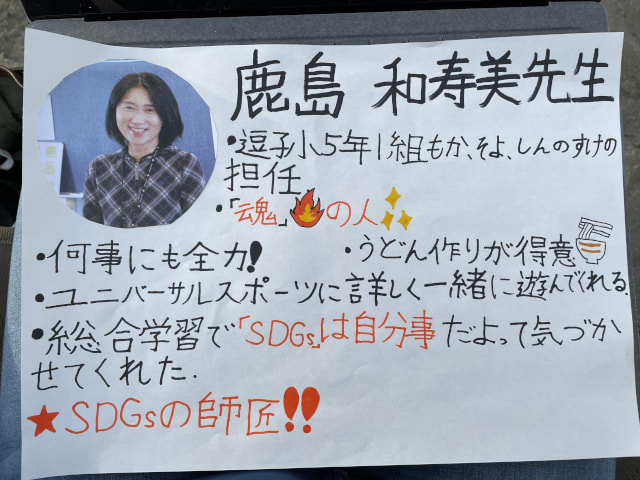 鹿島 和寿美先生
・逗子小5年1組もか、そよ、しんのすけの
担任
・「魂」🔥の人✨
・何事にも全力!
・うどん作りが得意
・ユニバーサルスポーツに詳しく一緒に遊んでくれる.
・総合学習で「SDGs」は自分事だよって気づか
せてくれた.
★SDGsの師匠!!